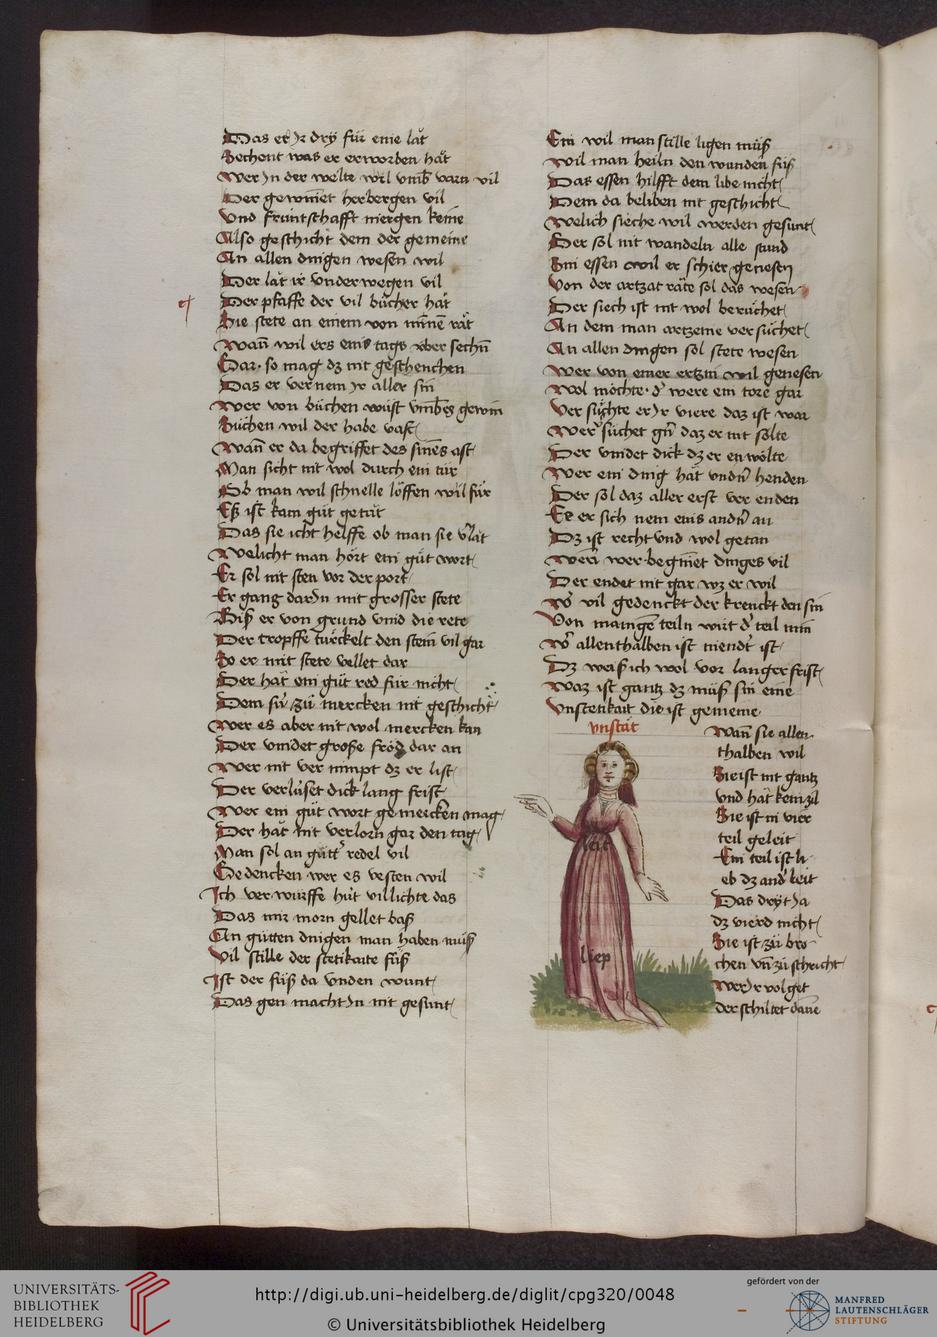 Das er Jr dry für eine lat
Sechent was er erworben hat
Wer Jn der welte wil vmb varn vil
Der gewinnet herbergen vil
Vnd fruntschafft niergen keine
Also geschicht dem der gemeine
An allen dingen wesen wil
Der lat ir vnder wegen vil
Der pfaffe der vil bucher hat
Hie stete an einem von minem rat
Wann wil ers eins tags vber sechn
Gar so mag dz nit geschenchen
Das er vernem Jr aller sin
Wer von buchen wust vmbes gewin
Buchen wil der habe vast
Wann er da begriffet des sines ast
Man sicht nit wol durch ein tur
Ob man wil schnelle loffen wil für
Es ist kam gut getat
Das sie icht helffe ob man sie vlat
Welicht man hort ein gut wort
Er sol nit sten vor der port
Er gang dar Jn mit grosser stete
Biß er von grund vind die rete
Der tropffe turckelt den stein vil gar
So er mit stete vellet dar
Der hat ein gut red für nicht
Dem sü zu mercken nit geschicht
Wer es aber nit wol mercken kan
Der vindet große fröd dar an
Wer nit ver nimpt dz er list
Der verluset dick lang frist
Wer ein gut wort gemercken mag
Der hat nit verlorn gar den tag
Man sol an gutt redel vil
Gedencken wer es vesten wil
Ich ver wurffe hut villichte das
Das mir morn gellet baß
An gutten dingen man haben muß
Vil stille der stetikaite fuß
Ist der fuß da vnden wunt
Das gen macht Jn nit gesunt
Ein wil man stille ligen muß
Wil man heiln den wunden fuß
Das essen hilfft dem libe nicht
Dem da beliben nit geschicht
Welich sieche wil werden gesunt
Der sol nit wandeln alle stund
Sin essen wil er schier genesen
Von der artzat räte sol das wesen
Der siech ist nit wol beruchet
An dem man artzenie versuchet
An allen dingen sol stete wesen
Wer von einer ertzni wil genesen
Wol möchte d' were ein tore gar
Ver suchte er Jr viere daz ist war
Wer suchet gn daz er nit solte
Der vindet dick dz er en wolte
Wer ein ding hat vndn henden
Der sol daz aller erst ver enden
Ee er sich nem eins andn an
Dz ist recht vnd wol getan
Wem wer beginet dinges vil
Der endet nit gar wz er wil
W' vil gedenckt der krenckt den sin
Von mange teiln wirt d' teil min
W' allenthalben ist niendt ist
Dz weiß ich wol vor langer frist
Waz ist gantz dz muß sin eine
Vnstetikait die ist gemeine
vnstät
Wann sie allen
thalben wil
Sie ist nit gantz
vnd hat kein zil
Sie ist in vier
teil geleit
Ein teil ist li
eb dz and' leit
Das dryt Ja
dz vierd nicht
Sie ist zu bro
chen vn zu schricht
Wer Jr volget
der schiltet dane
liep
UNIVERSITÄTS-
BIBLIOTHEK
HEIDELBERG
http://digi.ub.uni-heidelberg.de/diglit/cpg320/0048
© Universitätsbibliothek Heidelberg
gefördert von der
MANFRED
LAUTENSCHLÄGER
STIFTUNG